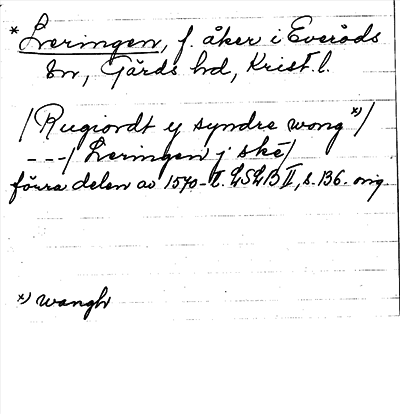 * Leringen, f. åker i Everöds
sn, Gärds hd, Krist. l.
/Rugiordt y syndre wong *)/
---/ Leringen j ske/
förra delen av 1570-t. LSLB II, s. 136. orig.
*) wangh